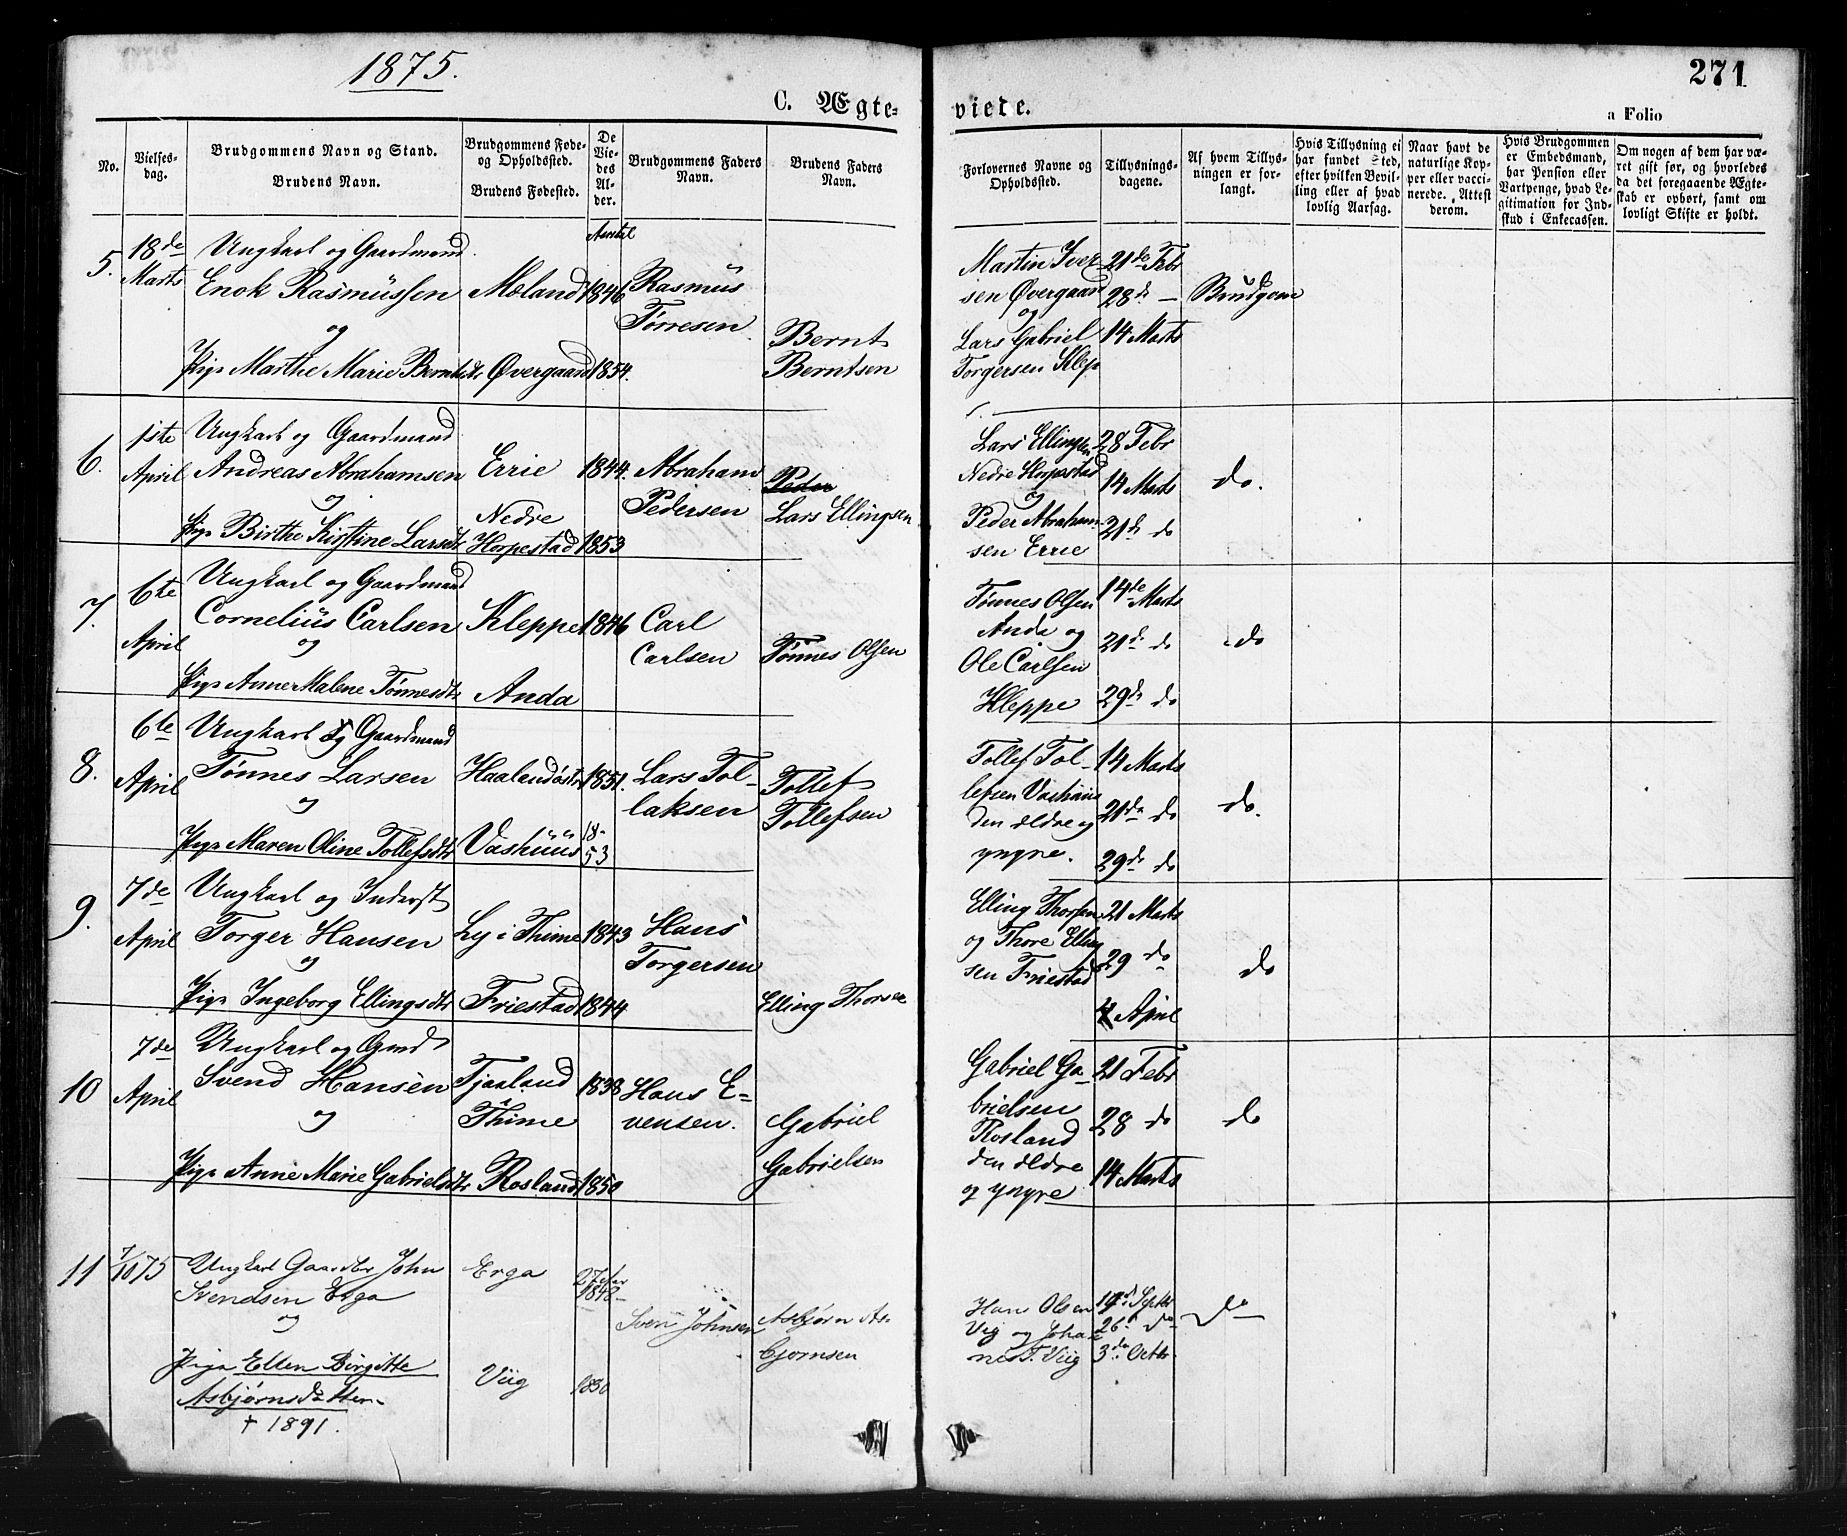 1875.
271
C. Ægte-
viede.
a Folio
No.
Vielses-
dag.
Brudgommens Navn og Stand.
Brudens Navn.
Brudgommens Føde-
og Opholdssted.
Brudens Fødested.
De
Vie-
des
Al-
der.
Brudgommens Faders
Navn.
Brudens Faders
Navn.
Forlovernes Navne og
Opholdssted.
Tillysnings-
dagene.
Af hvem Tillys-
ningen er for-
langt.
Hvis Tillysning ei
har fundet Sted,
efter hvilken Bevil-
ling eller af hvad
lovlig Aarsag.
Naar havt de
naturlige Kop-
per eller vacci-
nerede. Attest
derom.
Hvis Brudgommen
er Embedsmand,
har Pension eller
Vartpenge, hvad Le-
gitimation for Ind-
skud i Enkecassen.
Om nogen af dem har væ-
ret gift før, og hvorledes
da det foregaaende Ægte-
skab er ophørt, samt om
lovligt Skifte er holdt.
5. 18de Marts
Ungkarl og Gaardmand
Enok Rasmussen
og
Pige Marthe Marie Berntsdtr
Mæland
Øvergaard
1846
1854.
Rasmus
Tørresen
Bernt
Berntsen
Martin Iver-
sen Øvergaard
og
Lars Gabriel
Torgersen Klep
21de Febr
28de —
14 Marts
Brudgom
6. 1ste April
Ungkarl og Gaardmand
Andreas Abrahamsen
og
Pige Birthe Kirstine Larsdtr
Errie
Nedre
Horpestad
1844.
1853
Abraham
Pedersen
Peder
Lars Ellingsen
Lars Ellingsen
Nedre Horpestad
og
Peder Abraham-
sen Errie
28 Febr
14 Marts
21de do
do.
7. 6te April
Ungkarl og Gaardmand
Cornelius Carlsen
og
Pige Anne Malene Tønnesdtr
Kleppe
Anda
1846
Carl
Carlsen
Tønnes Olsen
Tønnes Olsen
Anda og
Ole Carlsen
Kleppe
14de Marts
21de do
29de do
do
8. 6te April
Ungkarl og Gaardmand
Tønnes Larsen
og
Pige Maren Oline Tollefsdtr
Haaland østr
Vashuus
1851.
18-
53
Lars Tol-
laksen
Tollef
Tollefsen
Tollef Tol-
lefsen Vashuus
den ældre og
yngre.
14 Marts
21de do
29de do
do.
9. 7de April
Ungkarl og Inderst
Torger Hansen
og
Pige Ingeborg Ellingsdtr
Ly i Thime
Friestad
1843
1844
Hans
Torgersen
Elling Thorsen
Elling Thorsen
og Thore Elling
sen Friestad
21 Marts
29 do
April
do
10 7de April
Ungkarl og Gmd
Svend Hansen
og
Pige Anne Marie Gabrielsdtr
Tjaaland
i
Thime
Rosland
1838
1850
Hans E-
vensen.
Gabriel
Gabrielsen
Gabriel Ga-
brielsen
Rosland
den ældre
og yngre
21 Febr
28 do
14 Marts
do
11 7/10 75
Ungkarl Gaardbr John
Svendsen Erga
og
Pige Ellen Birgitte
Asbjørnsdatter
† 1891.
Erga
Viig
27 Aar
1848
1850
Sven Johnsen
Asbjørn As-
bjørnsen
Hans Olsen
Vig og Joha
nes T. Viig
19de Septbr
26de do
3de Octbr
do